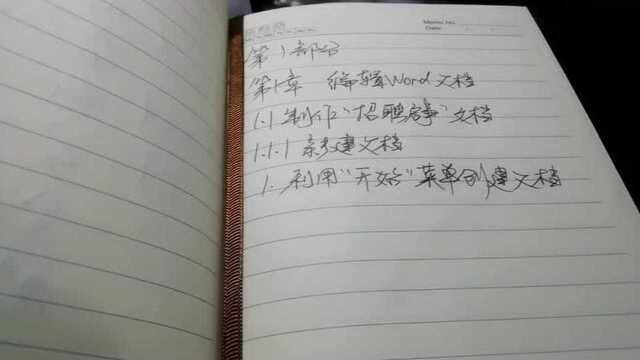 Memo No.
Date
第1部分
第1章 编辑Word文档
1.1 制作“招聘启事”文档
1.1.1 新建文档
1. 利用“开始”菜单创建文档